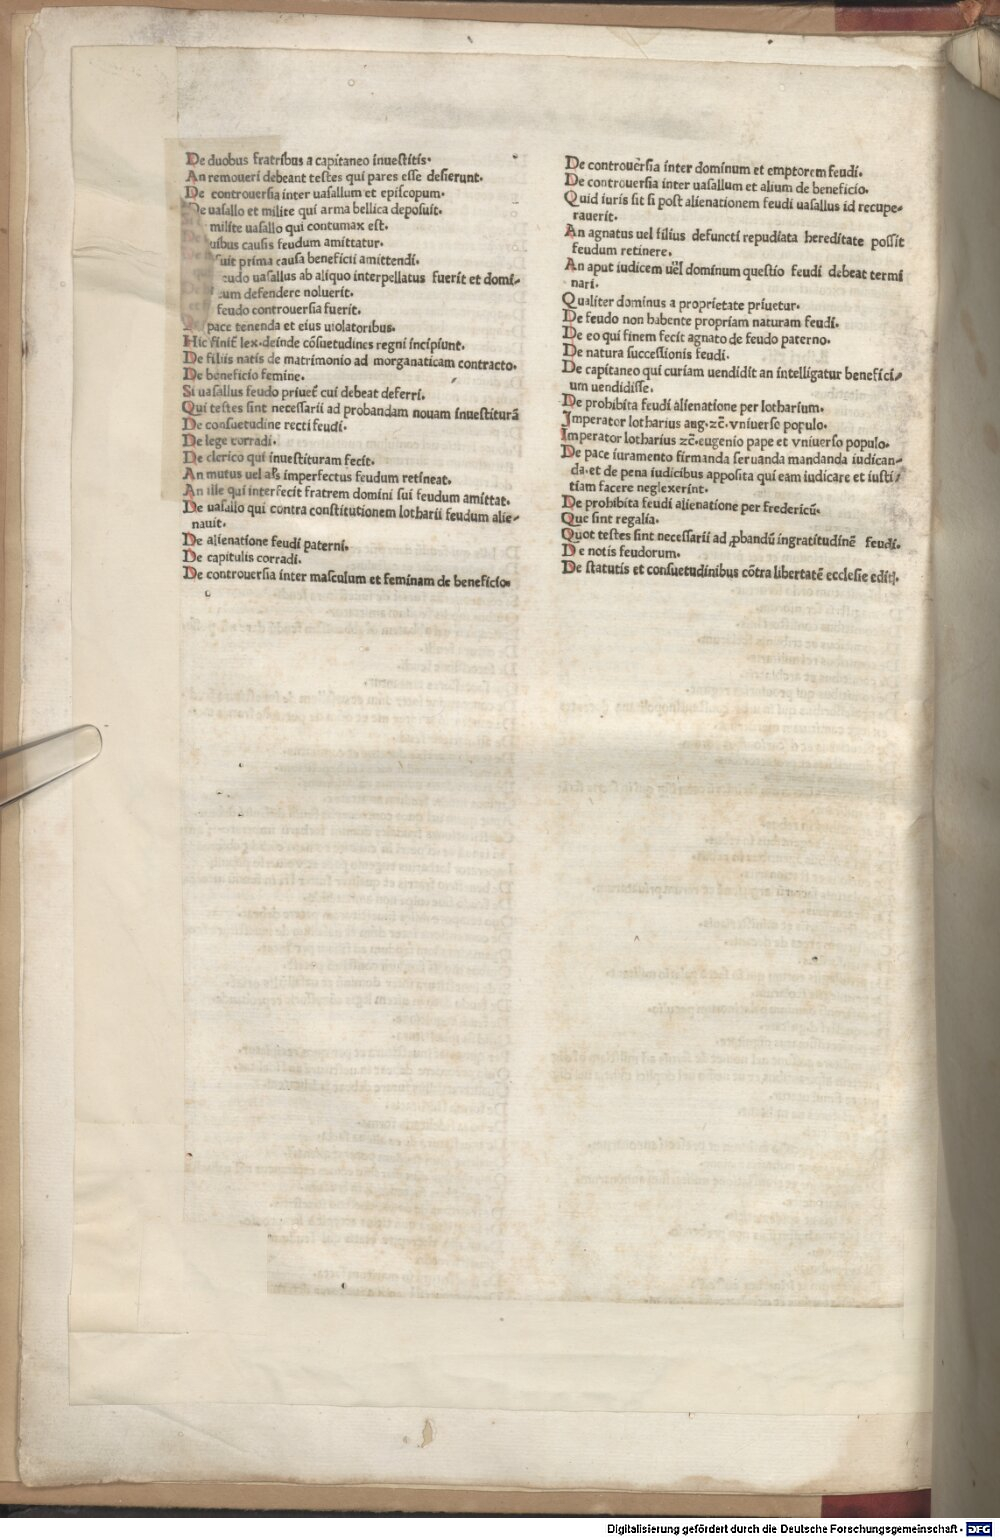 De duobus fratribus a capitaneo inuestitis.
An remoueri debeant testes qui pares esse desierunt.
De controuersia inter uasallum et episcopum.
De uasallo et milite qui arma bellica deposuit.
milite uasallo qui contumax est.
uibus causis feudum amittatur.
fuit prima causa beneficii amittendi.
eudo uasallus ab aliquo interpellatus fuerit et domi-
cum defendere noluerit.
feudo controuersia fuerit.
pace tenenda et eius uiolatoribus.
Hic finit̃ lex. deinde cõsuetudines regni incipiunt.
De filiis natis de matrimonio ad morganaticam contracto.
De beneficio femine.
Si uasallus feudo priuet̃ cui debeat deferri.
Qui testes sint necessarii ad probandam nouam inuestiturã
De consuetudine recti feudi.
De lege corradi.
De clerico qui inuestituram fecit.
An mutus uel als̃ imperfectus feudum retineat.
An ille qui interfecit fratrem domini sui feudum amittat.
De uasallo qui contra constitutionem lotharii feudum alie-
nauit.
De alienatione feudi paterni.
De capitulis corradi.
De controuersia inter masculum et feminam de beneficio.
De controuersia inter dominum et emptorem feudi.
De controuersia inter uasallum et alium de beneficio.
Quid iuris sit si post alienationem feudi uasallus id recupe-
rauerit.
An agnatus uel filius defuncti repudiata hereditate possit
feudum retinere.
An aput iudicem uel dominum questio feudi debeat termi
nari.
Qualiter dominus a proprietate priuetur.
De feudo non habente propriam naturam feudi.
De eo qui finem fecit agnato de feudo paterno.
De natura successionis feudi.
De capitaneo qui curiam uendidit an intelligatur benefici-
um uendidisse.
De prohibita feudi alienatione per lotharium.
Imperator lotharius aug. zc̃. vniuerso populo.
Imperator lotharius zc̃. eugenio pape et vniuerso populo.
De pace iuramento firmanda seruanda mandanda iudican-
da. et de pena iudicibus apposita qui eam iudicare et iusti-
tiam facere neglexerint.
De prohibita feudi alienatione per fredericũ.
Que sint regalia.
Quot testes sint necessarii ad ꝓbandũ ingratitudinẽ feudi.
De notis feudorum.
De statutis et consuetudinibus cõtra libertatẽ ecclesie editꝭ.
Digitalisierung gefördert durch die Deutsche Forschungsgemeinschaft - DFG